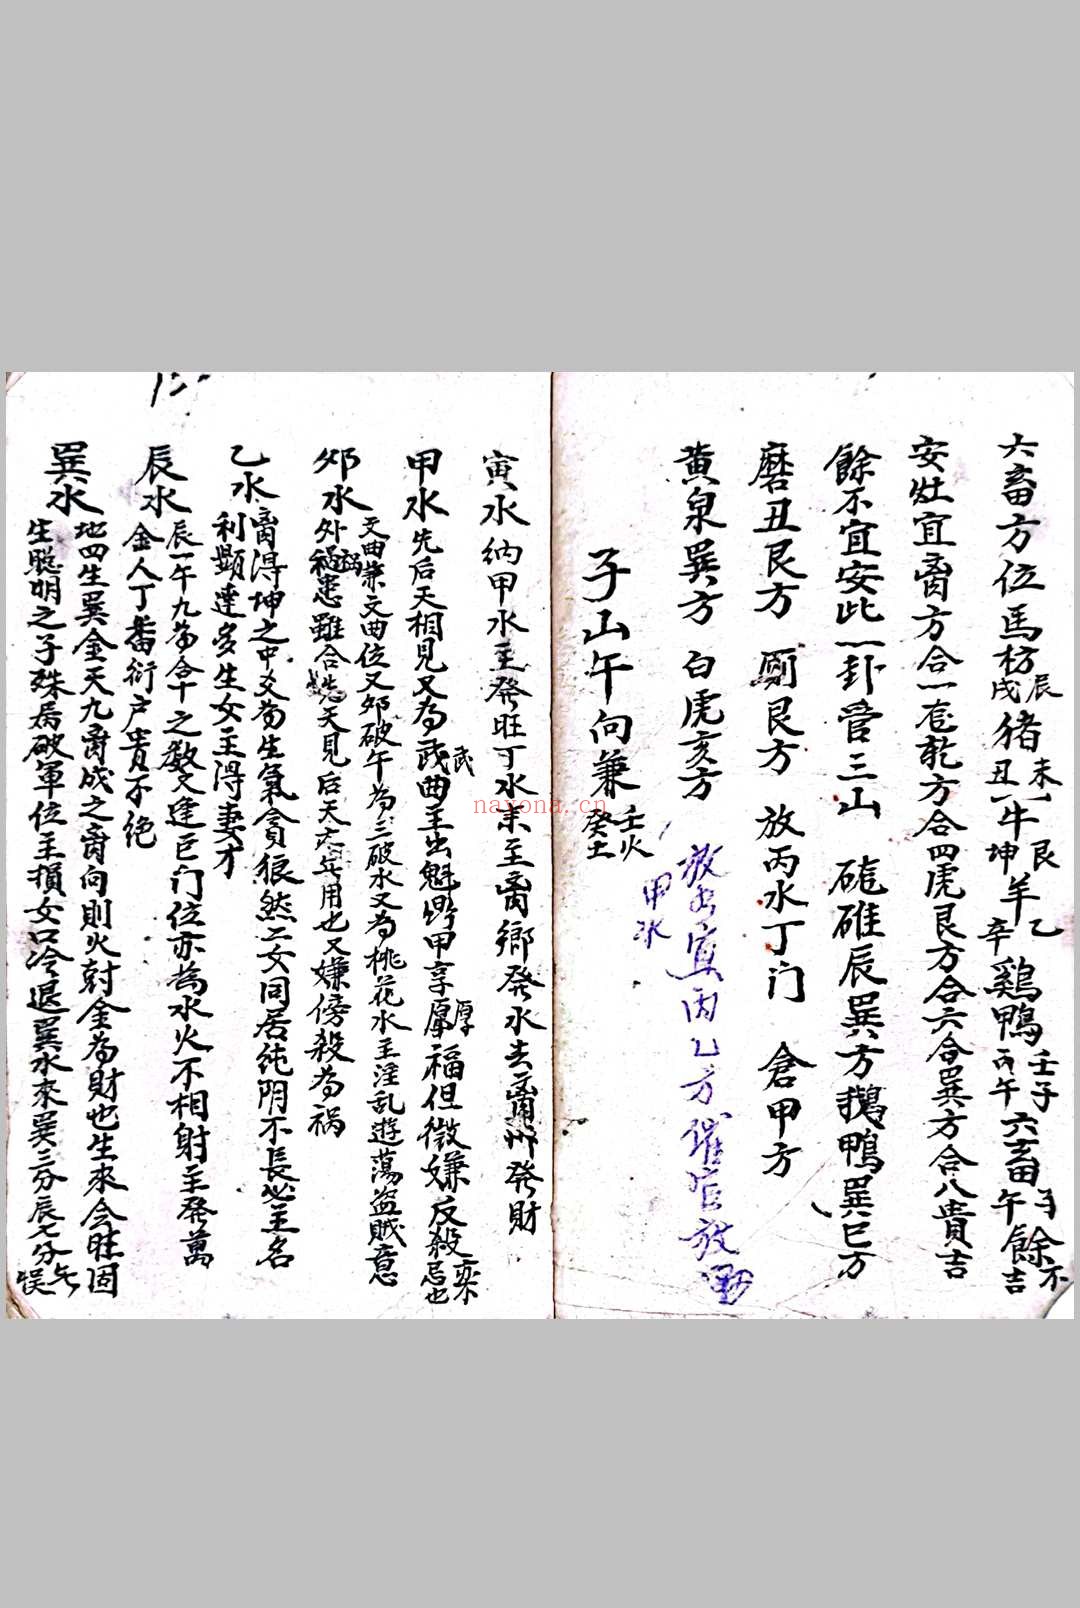 六畜方位馬枋辰戌豬未丑牛艮坤羊乙辛鷄鴨壬子丙午六畜午餘不吉
安灶宜离方合一 乾方合四虎艮方合六合巽方合八貴吉
餘不宜安此一卦管三山 碓辰巽方鵝鴨巽巳方
磨丑艮方 厠艮方 放丙水丁门 倉甲方
黄泉巽方 白虎亥方
放水宜丙乙方催官放
甲水
子山午向兼壬火癸土
寅水納甲水主發旺丁水来至离鄉發水去离 發財
甲水先后天相見又為武曲主出魁 甲享厚福但微嫌反殺 忌也
卯水文曲兼文曲位又卯破午為三破水又為桃花水主淫乱遊蕩盗賊意
外禍患雖合 天見后天 用也又嫌傍殺為祸
乙水离得坤之中爻為生氣貪狼然二女同居纯阴不長必主名
利顯達多生女主得妻才
辰水辰一午九為合十之数又逢巨门位亦為水火不相射主發萬
金人丁蕃衍户貴不绝
巽水地四生巽金天九 成之离向則火尅金為財也生來今旺固
生聪明之子殊居破軍位主損女口冷退巽水來巽三分辰七分 误
nayona.cn